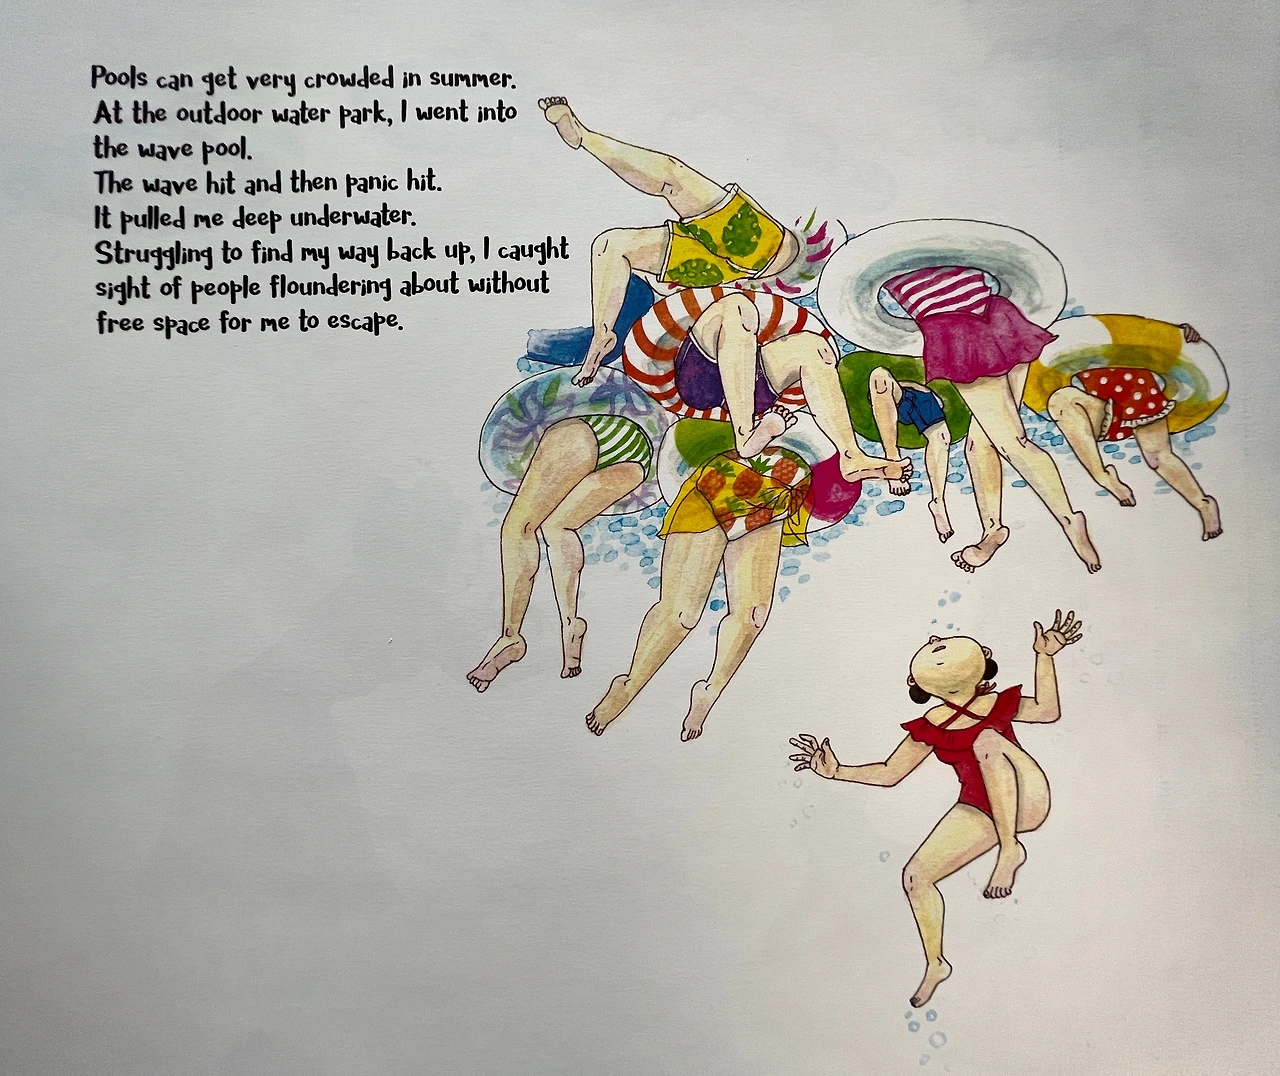 Pools can get very crowded in summer.
At the outdoor water park, I went into
the wave pool.
The wave hit and then panic hit.
It pulled me deep underwater.
Struggling to find my way back up, I caught
sight of people floundering about without
free space for me to escape.